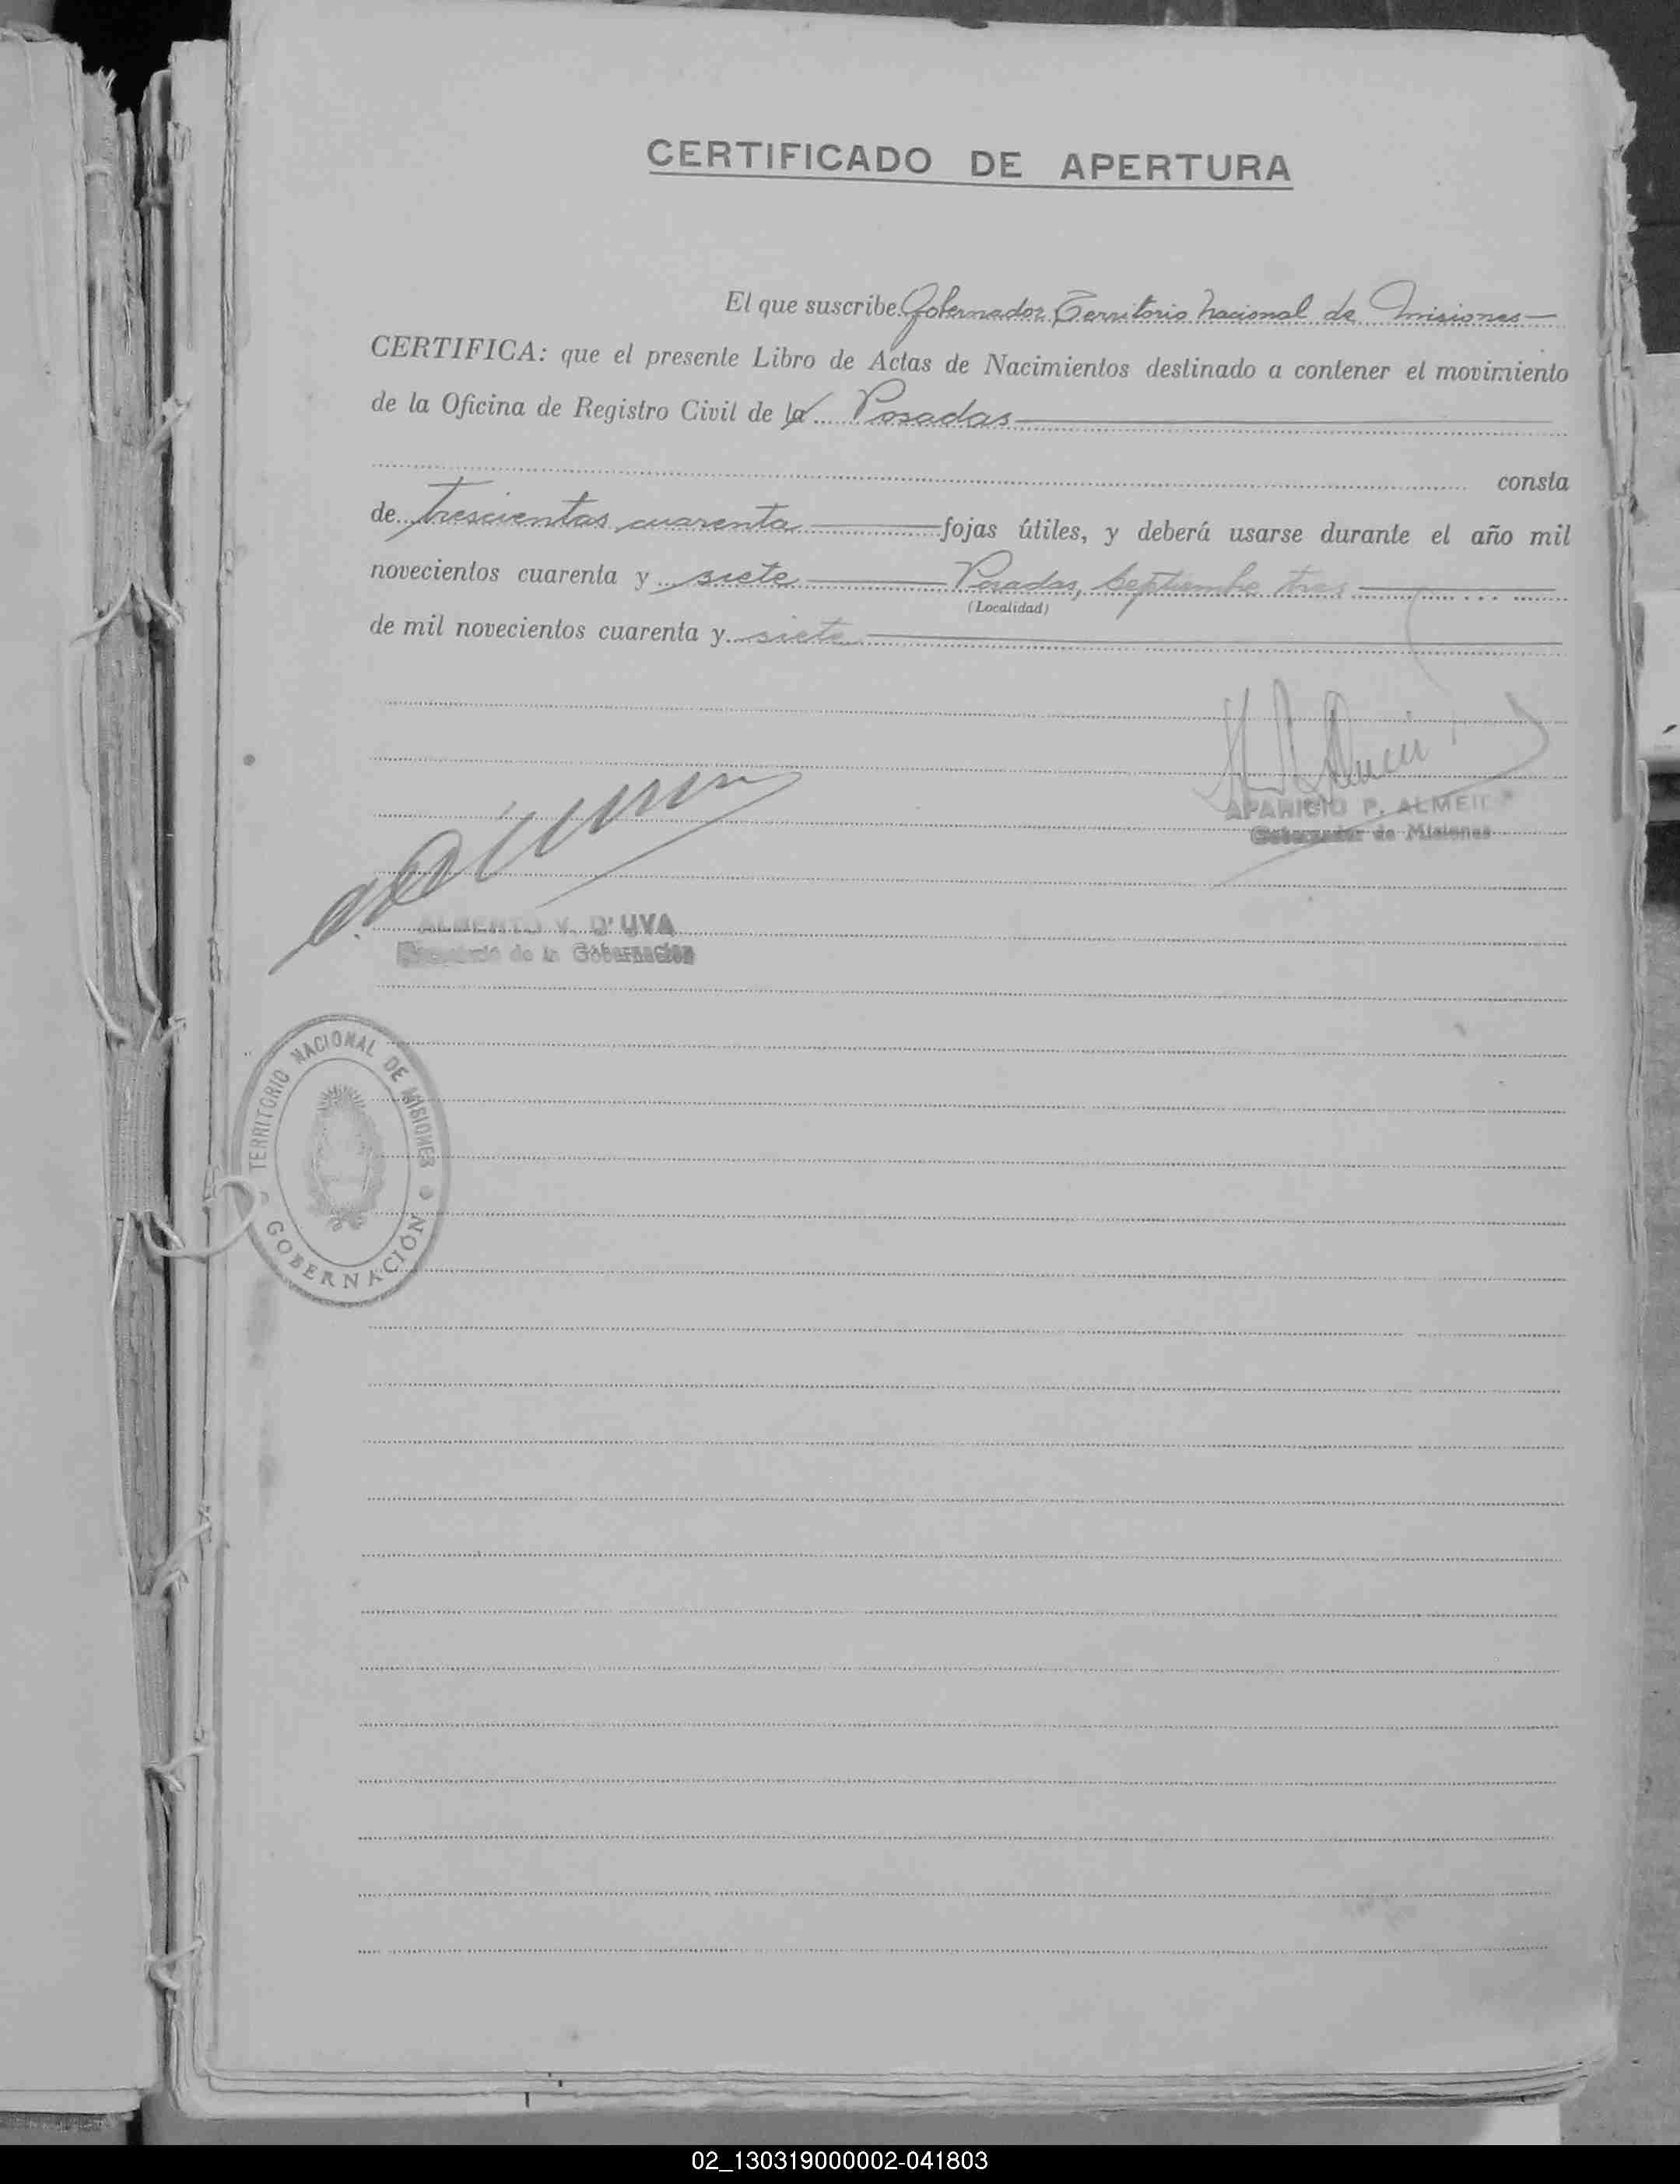 CERTIFICADO DE APERTURA
El que suscribe Gobernador Territorio Nacional de Misiones
CERTIFICA: que el presente Libro de Actas de Nacimientos destinado a contener el movimiento
de la Oficina de Registro Civil de la Posadas
consta
de trescientas cuarenta fojas útiles, y deberá usarse durante el año mil
novecientos cuarenta y siete Posadas, Septiembre tres
(Localidad)
de mil novecientos cuarenta y siete
APARICIO P. ALMEI
Gobernador de Misiones
ALBERTO V. D'UVA
de la Gobernación
TERRITORIO NACIONAL DE MISIONES
GOBERNACIÓN
02_130319000002-041803